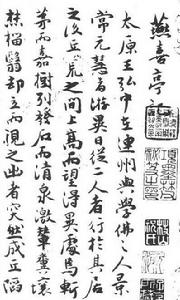 燕喜亭記
太原王弘中在連州與學佛人景
常元慧者游異日從二人者行於其居
之後丘荒之間上高而望得異處焉斬
茅而嘉樹列發石而清泉激輦糞壤
燔椔翳却立而視之出者突然成丘陷